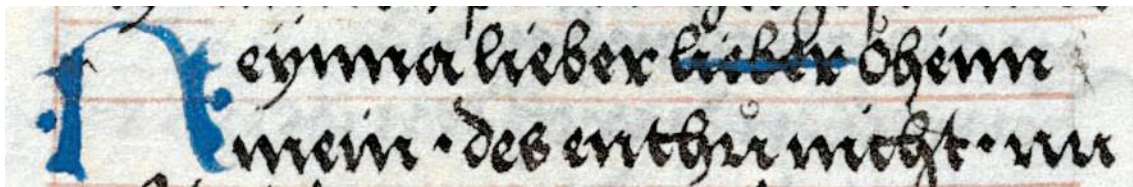 Neynna lieber lieber öhenn
mein · des enthů nicht · nu